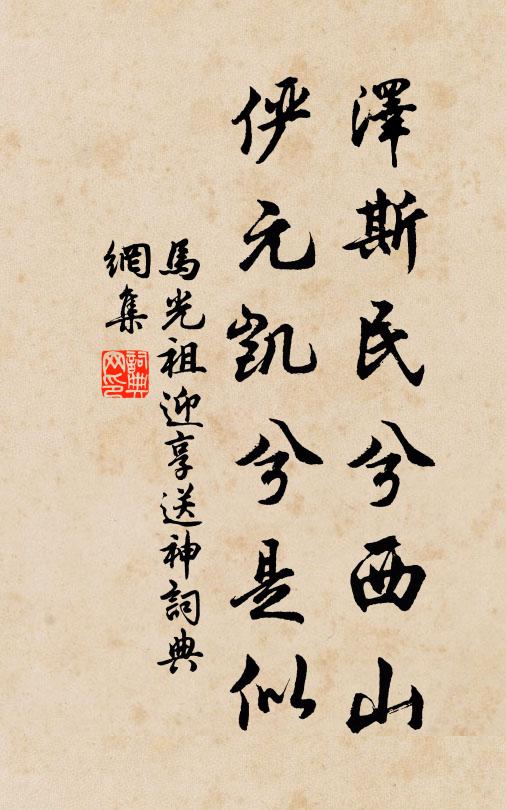 澤斯民兮西山
俨元凱兮是似
馬光祖迎享送神詞典
網集
詞典網印